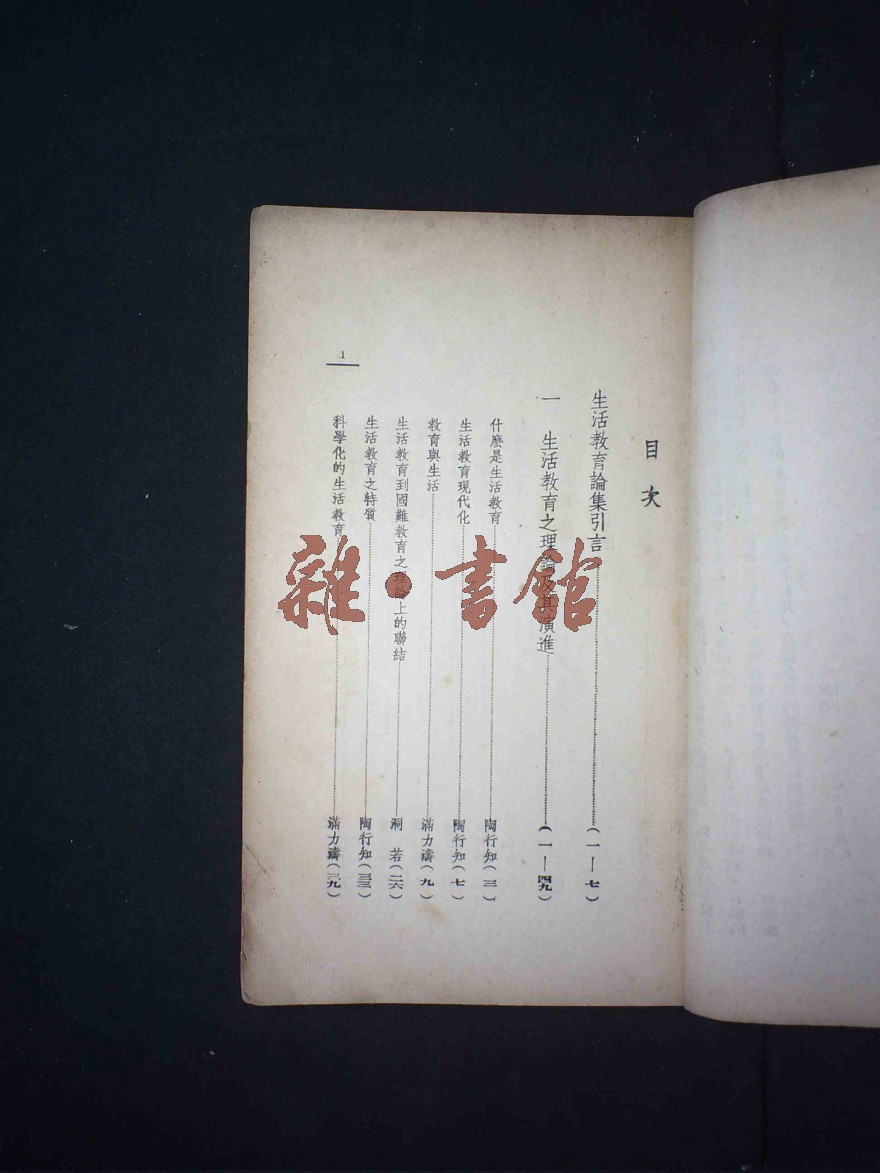 目次
生活教育論集引言……(一—七)
一 生活教育之理論及其演進……(一—四九)
什麽是生活教育……陶行知(三)
生活教育現代化……陶行知(七)
教育與生活……滿力濤(九)
生活教育到國難教育之理論上的聯結……洞若(二六)
生活教育之特質……陶行知(三三)
科學化的生活教育……滿力濤(三九)
1
雜·書館